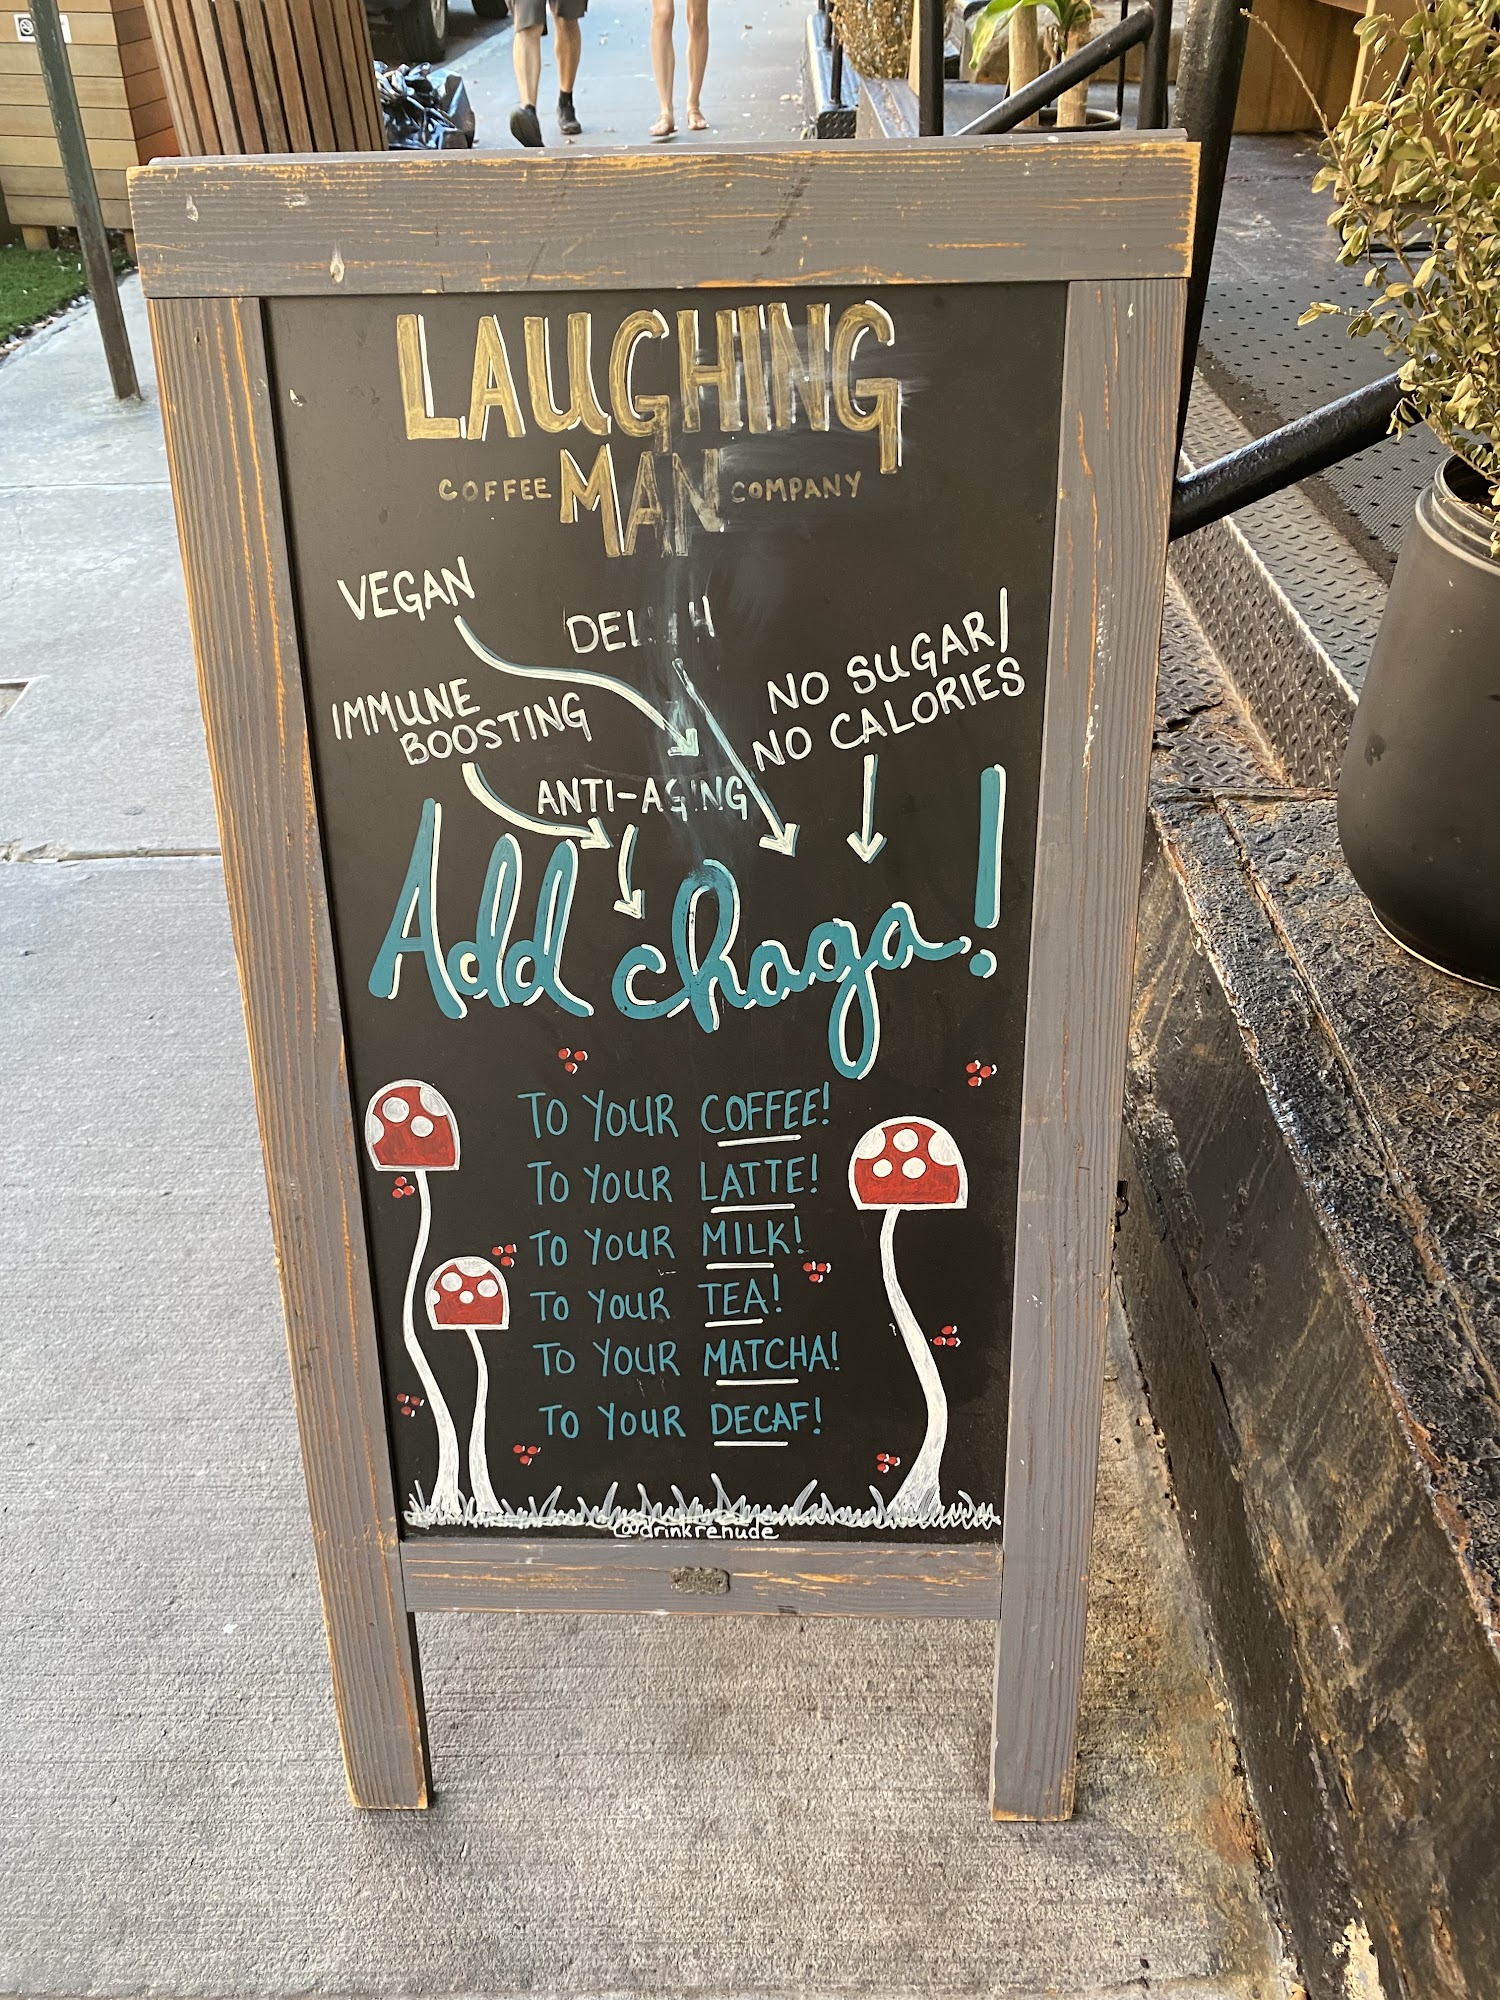 LAUGHING
COFFEE MAN COMPANY
VEGAN
NO SUGAR/
NO CALORIES
IMMUNE
BOOSTING
ANTI-AGING
Add chaga!
TO YOUR COFFEE!
TO YOUR LATTE!
TO YOUR MILK!
TO YOUR TEA!
TO YOUR MATCHA!
TO YOUR DECAF!
@drinkrenude